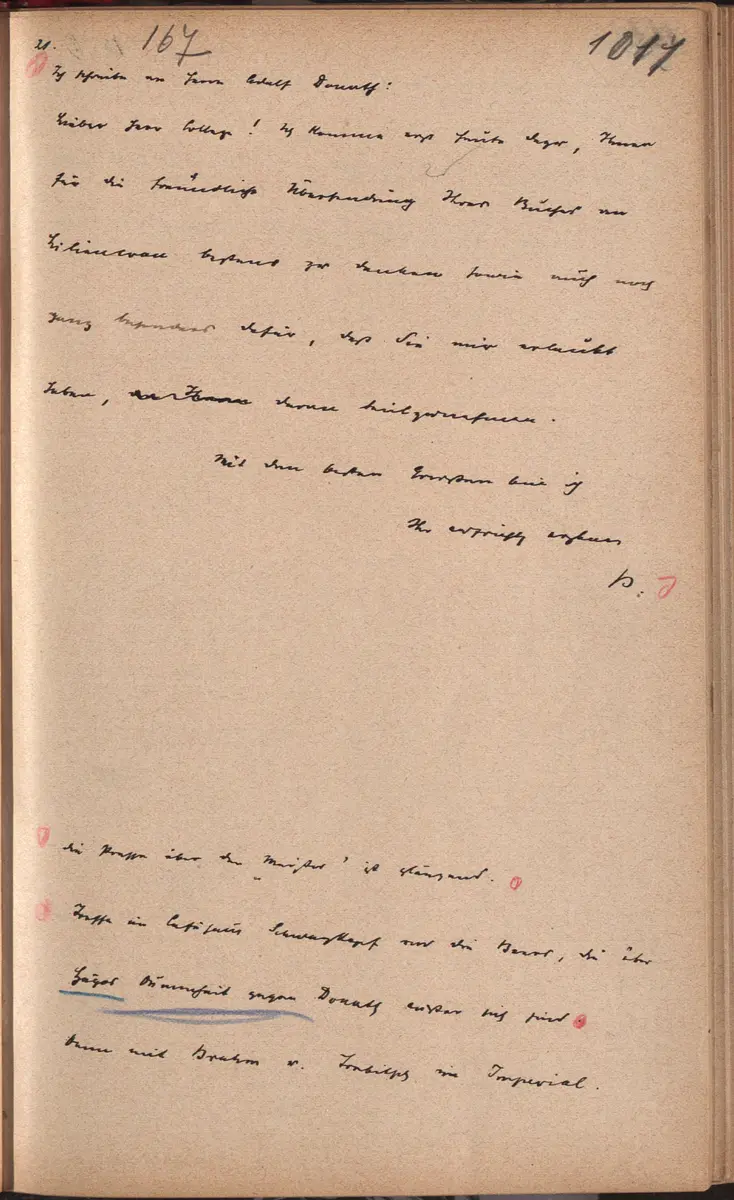 21.
167
1017
Ich schreibe an Herrn Adolf Donath:
Lieber Herr College! Ich komme erst heute dazu, Ihnen
für die freundliche Übersendung Ihres Buches an
Liliencron bestens zu danken sowie auch noch
ganz besonders dafür, daß Sie mir erlaubt
haben, daran teilzunehmen.
Mit den besten Grüssen bin ich
Ihr aufrichtig ergebener
B.
die Presse über den „Meister" ist glänzend.
Treffe im Caféhaus Schwarzkopf und die Beers, die über
Dummheit gegen Donath außer sich sind.
Dann mit Brahm u. im Imperial.